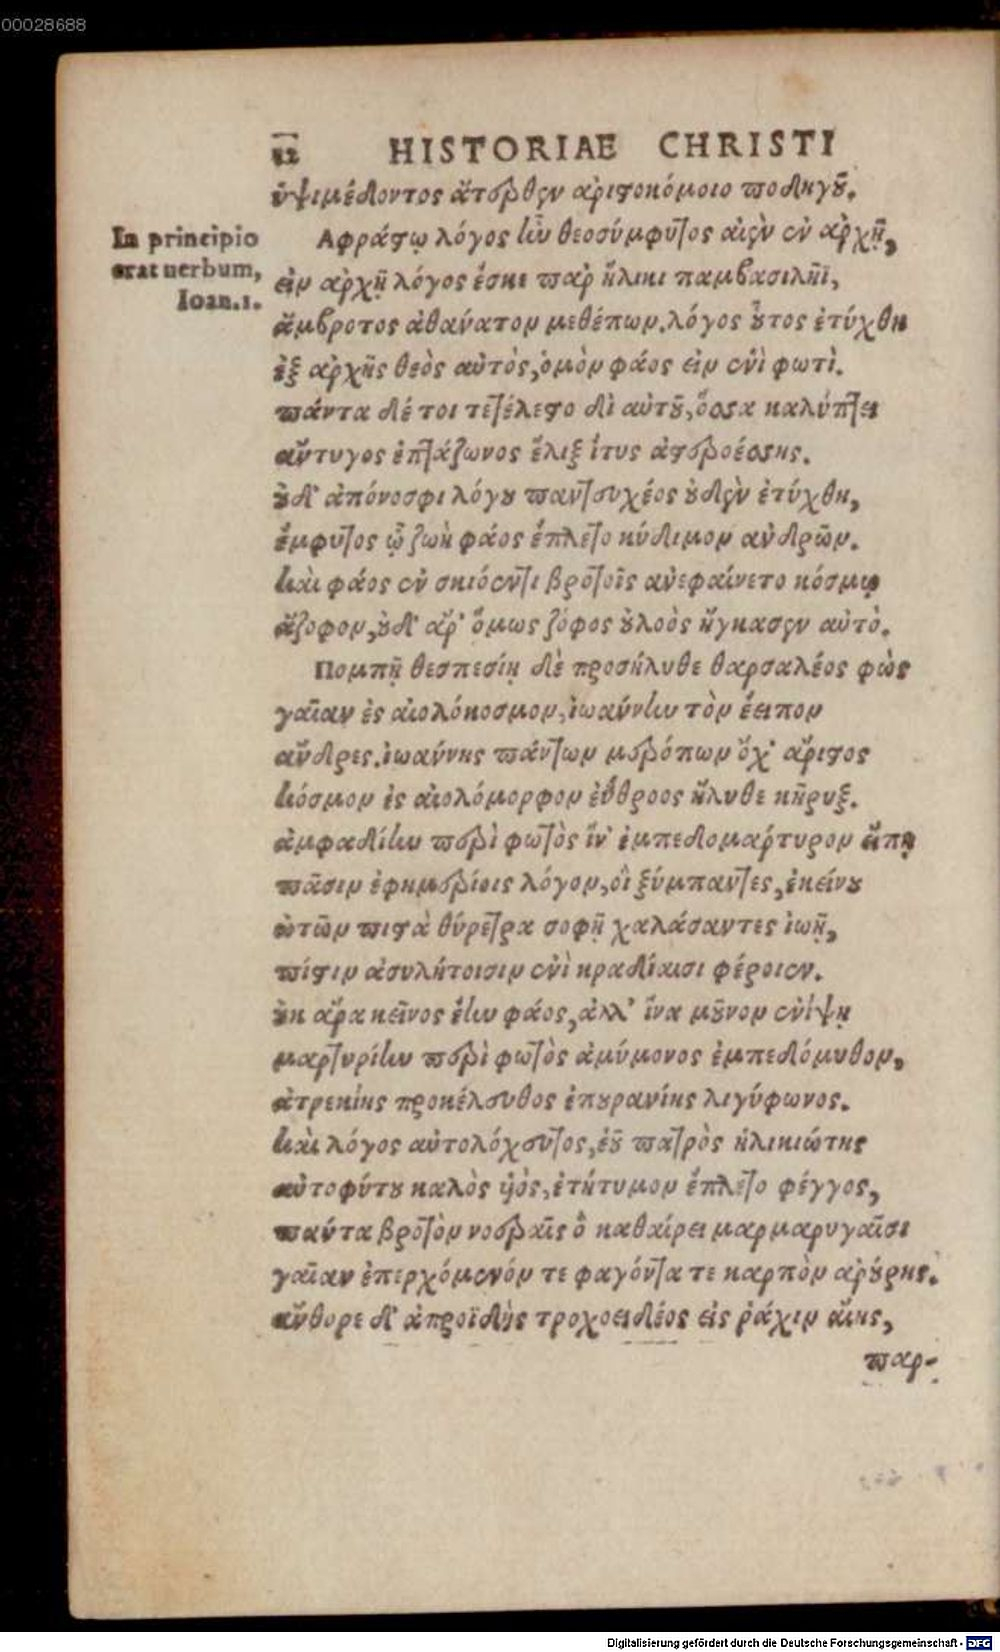 00028688
12 HISTORIAE CHRISTI
ὑψιμέδοντος ἄτερθεν ἀριστονόμοιο ποδηγοῦ.
In principio
erat uerbum,
Ioan.1.
Αφράστῳ λόγος ἦν θεοσύμφυτος αἰὲν ἐν ἀρχῇ,
εἰν ἀρχῇ λόγος ἔσκε παρ ἥλικι παμβασιλῆϊ,
ἄμβροτος ἀθάνατον μεθέπων. λόγος οὗτος ἐτύχθη
ἐξ ἀρχῆς θεὸς αὐτὸς, ὁμὸν φάος εἰν ἑνὶ φωτὶ.
πάντα δέ τοι τετέλεστο δι αὐτοῦ, ὅσσα καλύπτει
ἄντυγος ἑπτάζωνος ἕλιξ ἴτυς ἀστεροέσσης.
οὐδ' ἀπόνοσφι λόγου παντευχέος οὐδὲν ἐτύχθη,
ἔμφυτος ᾧ ζωὴ φάος ἔπλετο κύδιμον ἀνδρῶν.
Καὶ φάος ἐν σκιόεντι βροτοῖς ἀνεφαίνετο κόσμῳ
ἄζοφον, οὐδ' ἄρ' ὅμως ζόφος οὐλοὸς ἤγκασεν αὐτὸ.
Πομπῇ θεσπεσίῃ δὲ προσήλυθε θαρσαλέος φὼς
γαῖαν ἐς αἰολόκοσμον, ἰωάννην τὸν ἔειπον
ἄνδρες. ἰωάννης πάντων μερόπων ὄχ' ἄριστος
Κόσμον ἐς αἰολόμορφον ἐΰθροος ἤλυθε κῆρυξ.
ἀμφαδίην περὶ φωτὸς ἵν' ἐμπεδομάρτυρον εἴπῃ
πᾶσιν ἐφημερίοις λόγον, οἳ ξύμπαντες, ἐκείνου
ὠτῶν πιστὰ θύρετρα σοφῇ χαλάσαντες ἰωῇ,
πίστιν ἀσυλήτοισιν ἐνὶ κραδίαισι φέροιεν.
οὐκ ἄρα κεῖνος ἔην φάος, ἀλλ' ἵνα μοῦνον ἐνίψῃ
μαρτυρίην περὶ φωτὸς ἀμύμονος ἐμπεδόμυθον,
ἀτρεκίης προκέλευθος ἐπουρανίης λιγύφωνος.
Καὶ λόγος αὐτολόχευτος, ἑοῦ πατρὸς ἡλικιώτης
αὐτοφύτου καλὸς ὑὸς, ἐτήτυμον ἔπλετο φέγγος,
πάντα βροτὸν νοεραῖς ὃ καθαίρει μαρμαρυγαῖσι
γαῖαν ἐπερχόμενόν τε φαγόντα τε καρπὸν ἀρούρης.
ἄνθορε δ' ἀπροϊδὴς τροχοειδέος εἰς ῥάχιν αἴης,
παρ-
Digitalisierung gefördert durch die Deutsche Forschungsgemeinschaft - DFG